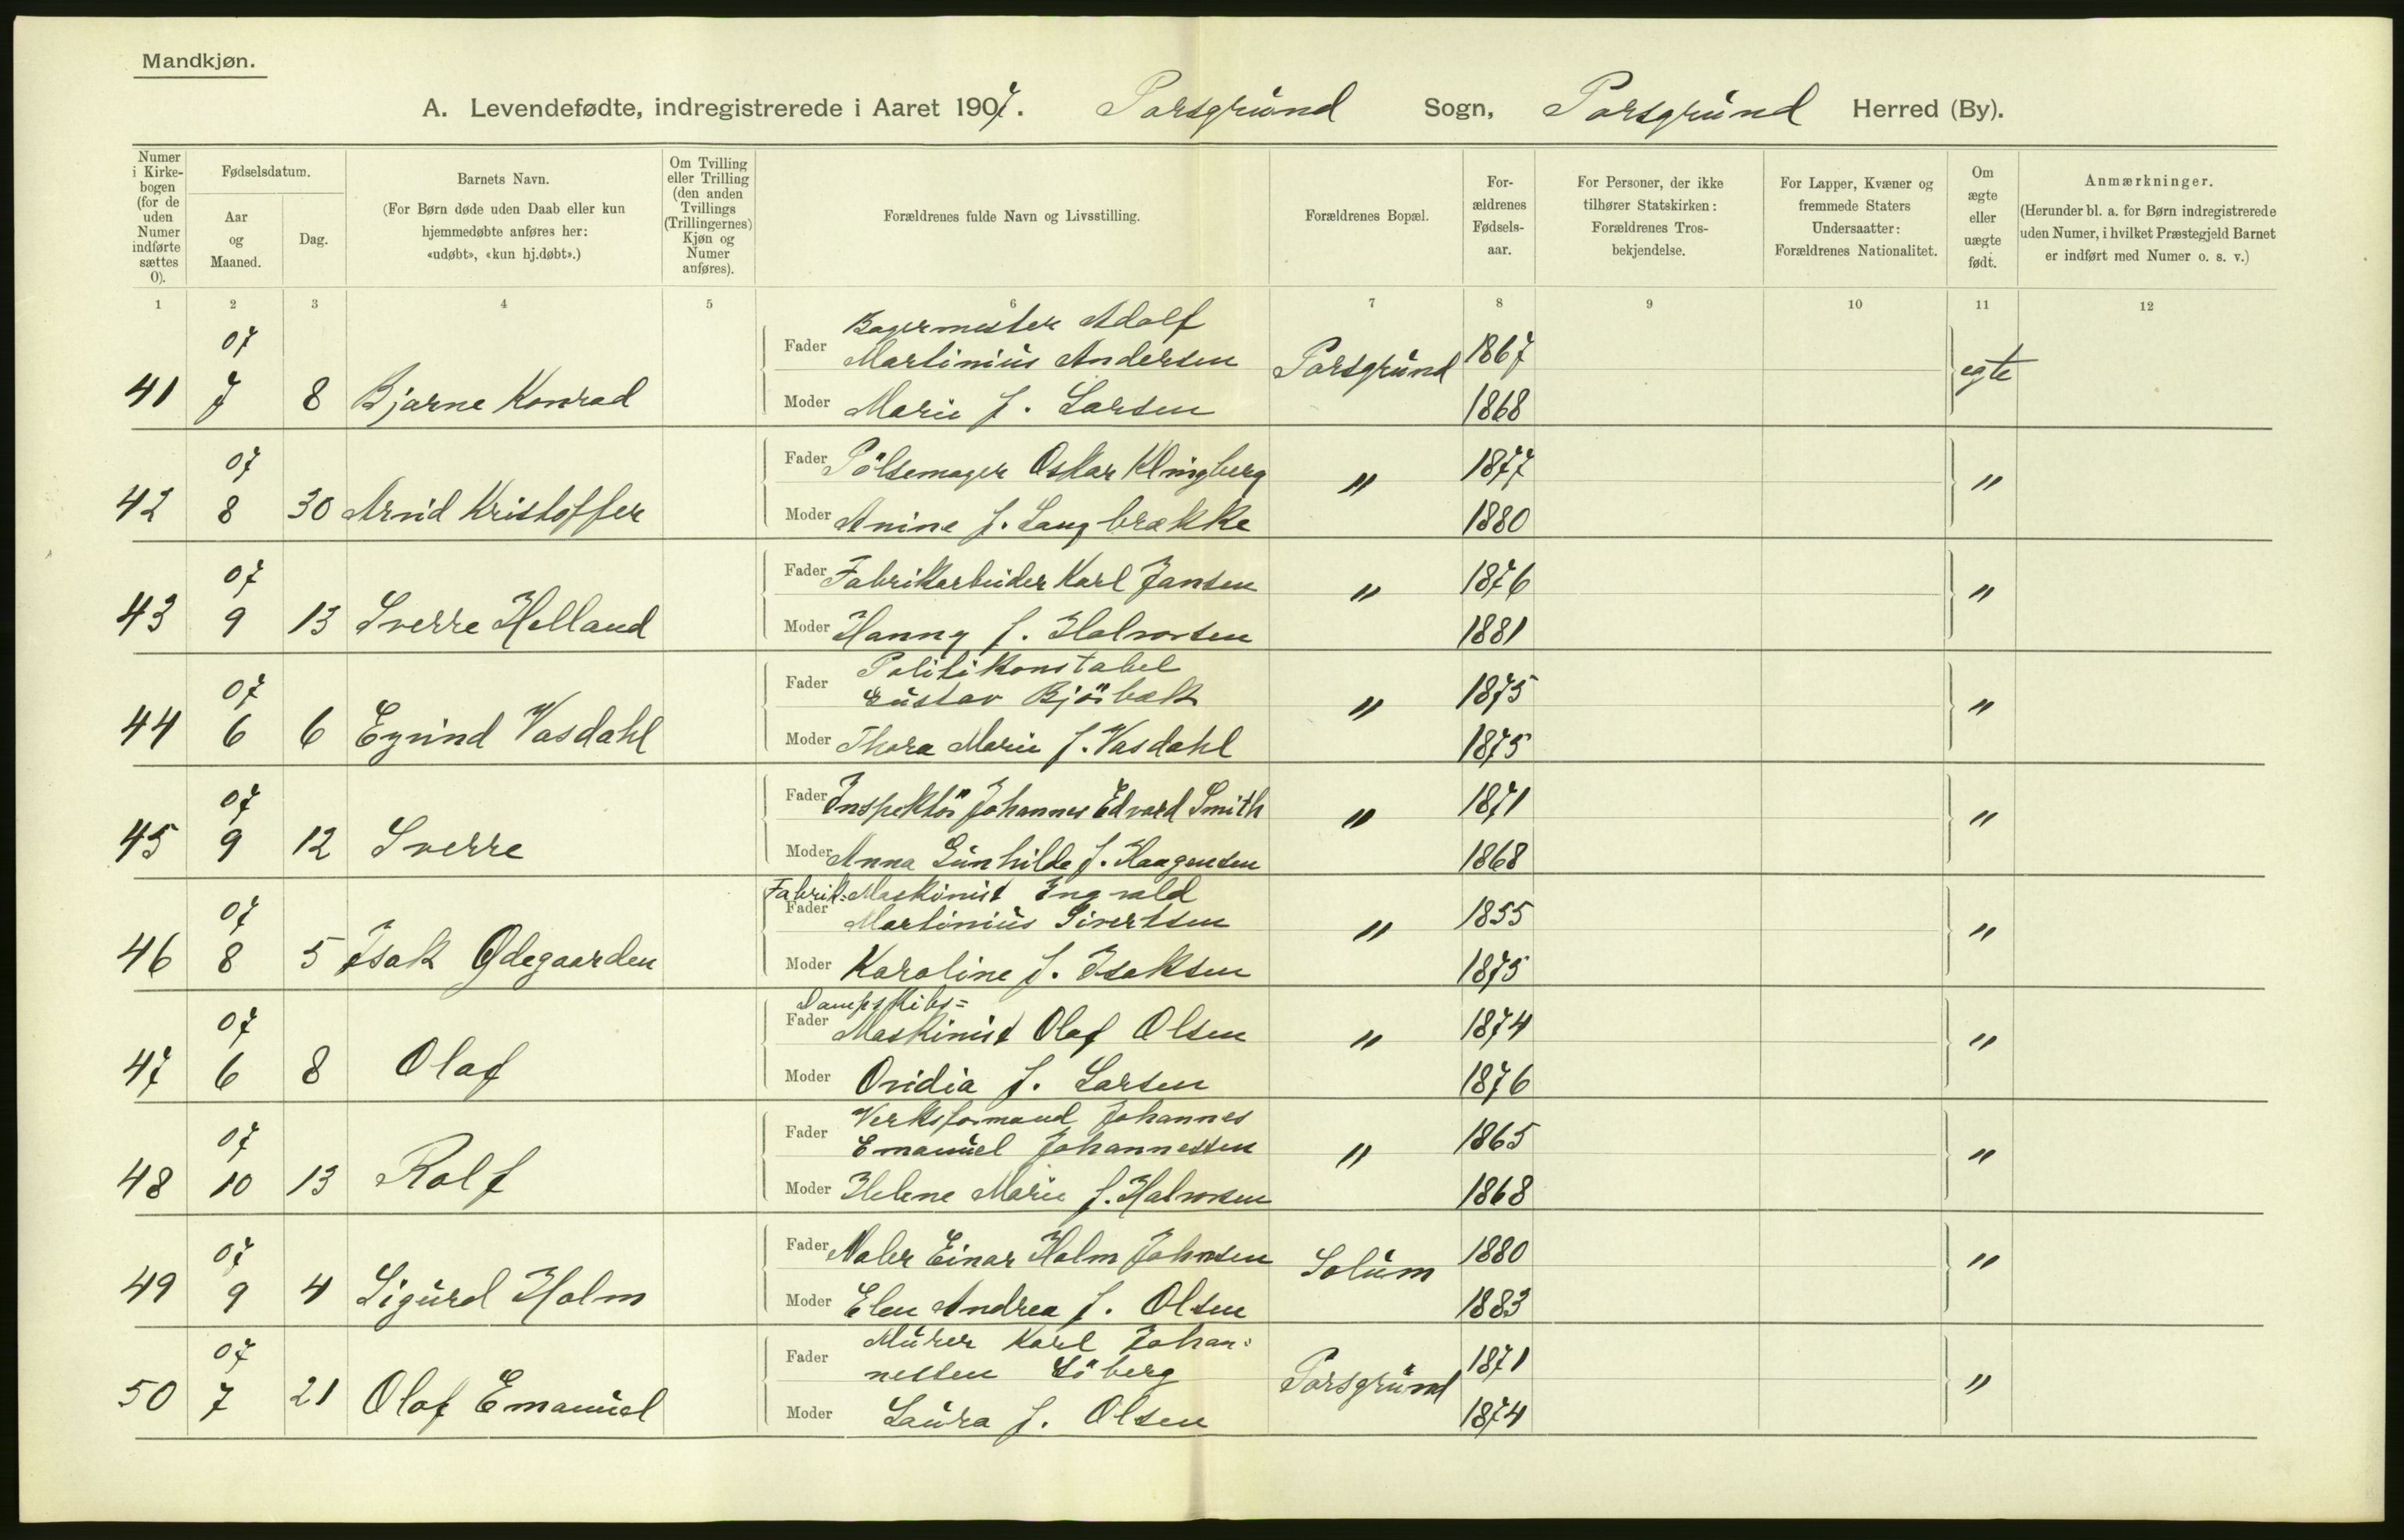 Mandkjøn.
A. Levendefødte, indregistrerede i Aaret 1907. Porsgrund Sogn, Porsgrund Herred (By).
Numer i Kirkebogen (for de uden Numer indførte sættes 0).
Fødselsdatum.
Aar og Maaned.
Dag.
Barnets Navn.
(For Børn døde uden Daab eller kun hjemmedøbte anføres her: «udøbt», «kun hj.døbt».)
Om Tvilling eller Trilling (den anden Tvillings (Trillingernes) Kjøn og Numer anføres).
Forældrenes fulde Navn og Livsstilling.
Forældrenes Bopæl.
For-ældrenes Fødsels-aar.
For Personer, der ikke tilhører Statskirken: Forældrenes Tros-bekjendelse.
For Lapper, Kvæner og fremmede Staters Undersaatter: Forældrenes Nationalitet.
Om ægte eller uægte født.
Anmærkninger.
(Herunder bl. a. for Børn indregistrerede uden Numer, i hvilket Præstegjeld Barnet er indført med Numer o. s. v.)
1 2 3 4 5 6 7 8 9 10 11 12
41 07 7 8 Bjarne Konrad
Fader Bagermester Adolf
Martinius Andersen Porsgrund 1867 egte
Moder Marie f. Larsen 1868
42 07 8 30 Arvid Kristoffer
Fader Pölsemager Oskar Klingberg " 1877 "
Moder Anine f. Langbrække 1880
43 07 9 13 Sverre Helland
Fader Fabrikarbeider Karl Jansen " 1876 "
Moder Hanny f. Halvorsen 1881
44 07 6 6 Eyvind Vasdahl
Fader Politikonstabel
Gustav Bjöbæk " 1875 "
Moder Thora Marie f. Vasdahl 1875
45 07 9 12 Sverre
Fader Inspektör Johannes Edvard Smith " 1871 "
Moder Anna Gunhilde f. Haagensen 1868
46 07 8 5 Isak Ødegaarden
Fader Fabrik-Maskinist Ingvald
Martinius Sivertsen " 1855 "
Moder Karoline f. Isaksen 1875
47 07 6 8 Olaf
Dampskibs=
Fader Maskinist Olaf Olsen " 1874 "
Moder Ovidia f. Larsen 1876
48 07 10 13 Rolf
Fader Verksformand Johannes
Emanuel Johannessen " 1865 "
Moder Helene Marie f. Halvorsen 1868
49 07 9 4 Sigurd Holm
Fader Maler Einar Holm Johnsen Solum 1880 "
Moder Elen Andrea f. Olsen 1883
50 07 7 21 Olaf Emanuel
Fader Murer Karl Johan=
nessen Löberg Porsgrund 1871 "
Moder Laura f. Olsen 1874